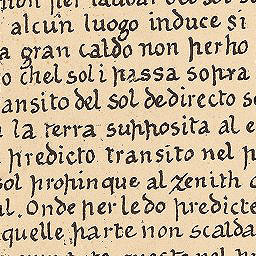 non per laudar del sol
alcun luogo induce si
a gran caldo non perho
o chel sol i passa sopra
ansito del sol dedirecto s
n la terra supposita al e
predicto transito nel p
sol propinque al zenith
al. Onde per le do predicte
quelle parte non scalda
questo nel